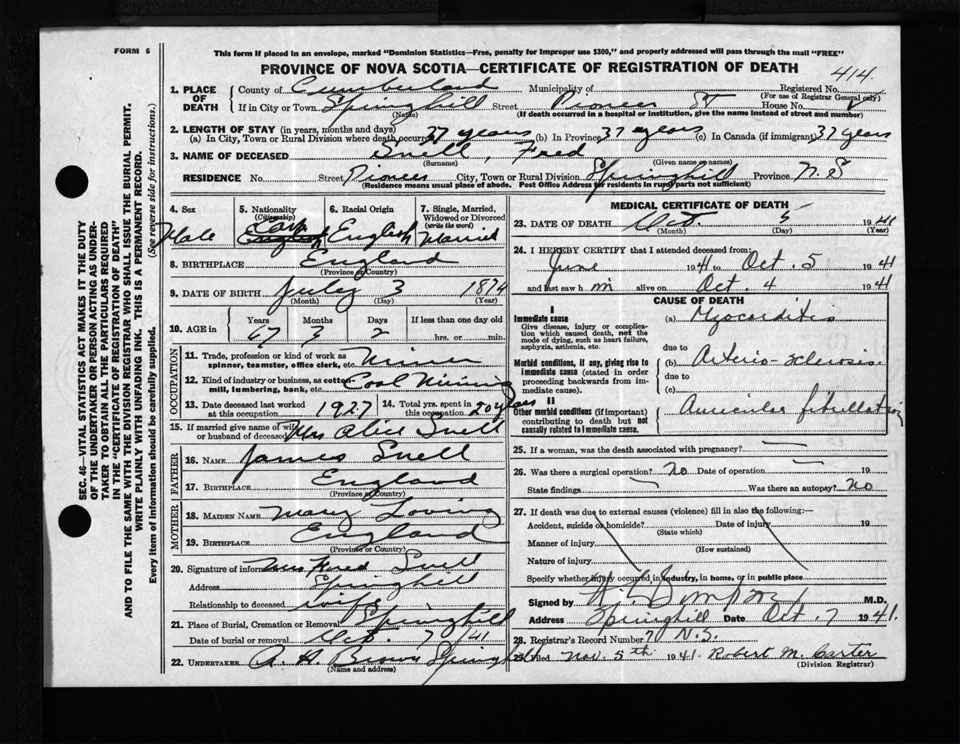 FORM 6
This form if placed in an envelope, marked "Dominion Statistics—Free, penalty for improper use $300," and properly addressed will pass through the mail "FREE"
PROVINCE OF NOVA SCOTIA—CERTIFICATE OF REGISTRATION OF DEATH
414
SEC. 46—VITAL STATISTICS ACT MAKES IT THE DUTY
OF THE UNDERTAKER OR PERSON ACTING AS UNDER-
TAKER TO OBTAIN ALL THE PARTICULARS REQUIRED
IN THE "CERTIFICATE OF REGISTRATION OF DEATH"
AND TO FILE THE SAME WITH THE DIVISION REGISTRAR WHO SHALL ISSUE THE BURIAL PERMIT.
WRITE PLAINLY WITH UNFADING INK. THIS IS A PERMANENT RECORD.
Every item of information should be carefully supplied. (See reverse side for instructions.)
1. PLACE OF DEATH County of Cumberland Municipality of Registered No.
(For use of Registrar General only)
If in City or Town Springhill Street Pioneer ST House No.
(Name) (If death occurred in a hospital or institution, give the name instead of street and number)
2. LENGTH OF STAY (in years, months and days)
(a) In City, Town or Rural Division where death occurred 37 years (b) In Province 37 years (c) In Canada (if immigrant) 37 years
3. NAME OF DECEASED Snell, Fred
(Surname) (Given name or names)
RESIDENCE No. Street Pioneer City, Town or Rural Division Springhill Province N.S
(Residence means usual place of abode. Post Office Address for residents in rural parts not sufficient)
4. Sex Male
5. Nationality (Citizenship) Can English
6. Racial Origin English
7. Single, Married, Widowed or Divorced (write the word) Married
8. BIRTHPLACE England
(Province or Country)
9. DATE OF BIRTH July 3 1874
(Month) (Day) (Year)
10. AGE in Years 67 Months 3 Days 2 If less than one day old hrs. or min.
OCCUPATION
11. Trade, profession or kind of work as spinner, teamster, office clerk, etc. Miner
12. Kind of industry or business, as cotton mill, lumbering, bank, etc. Coal Mining
13. Date deceased last worked at this occupation 1927 14. Total yrs. spent in this occupation 20 years
15. If married give name of wife or husband of deceased Mrs Alice Snell
FATHER
16. NAME James Snell
17. BIRTHPLACE England
(Province or Country)
MOTHER
18. MAIDEN NAME Mary Loving
19. BIRTHPLACE England
(Province or Country)
20. Signature of informant Mrs Fred Snell
Address Springhill
Relationship to deceased wife
21. Place of Burial, Cremation or Removal Springhill
Date of burial or removal Oct. 7 /41
22. UNDERTAKER A. H. Brown Springhill
(Name and address)
MEDICAL CERTIFICATE OF DEATH
23. DATE OF DEATH Oct. 5 1941
(Month) (Day) (Year)
24. I HEREBY CERTIFY that I attended deceased from:
June 1941 to Oct. 5 1941
and last saw h m alive on Oct. 4 1941
CAUSE OF DEATH
I
Immediate cause
Give disease, injury or complication which caused death, not the mode of dying, such as heart failure, asphyxia, asthenia, etc.
(a) Myocarditis
due to
Morbid conditions, if any, giving rise to immediate cause (stated in order proceeding backwards from immediate cause).
(b) Arterio-sclerosis
due to
(c)
II
Other morbid conditions (if important) contributing to death but not causally related to immediate cause.
Auricular fibrillation
25. If a woman, was the death associated with pregnancy?
26. Was there a surgical operation? no Date of operation 19
State findings Was there an autopsy? no
27. If death was due to external causes (violence) fill in also the following:—
Accident, suicide or homicide? Date of injury 19
(State which)
Manner of injury
(How sustained)
Nature of injury
Specify whether injury occurred in industry, in home, or in public place
Signed by M.D.
Address Springhill Date Oct. 7 1941.
28. Registrar's Record Number 7 N.S.
29. Filed Nov. 5th 1941. Robert M. Carter
(Division Registrar)